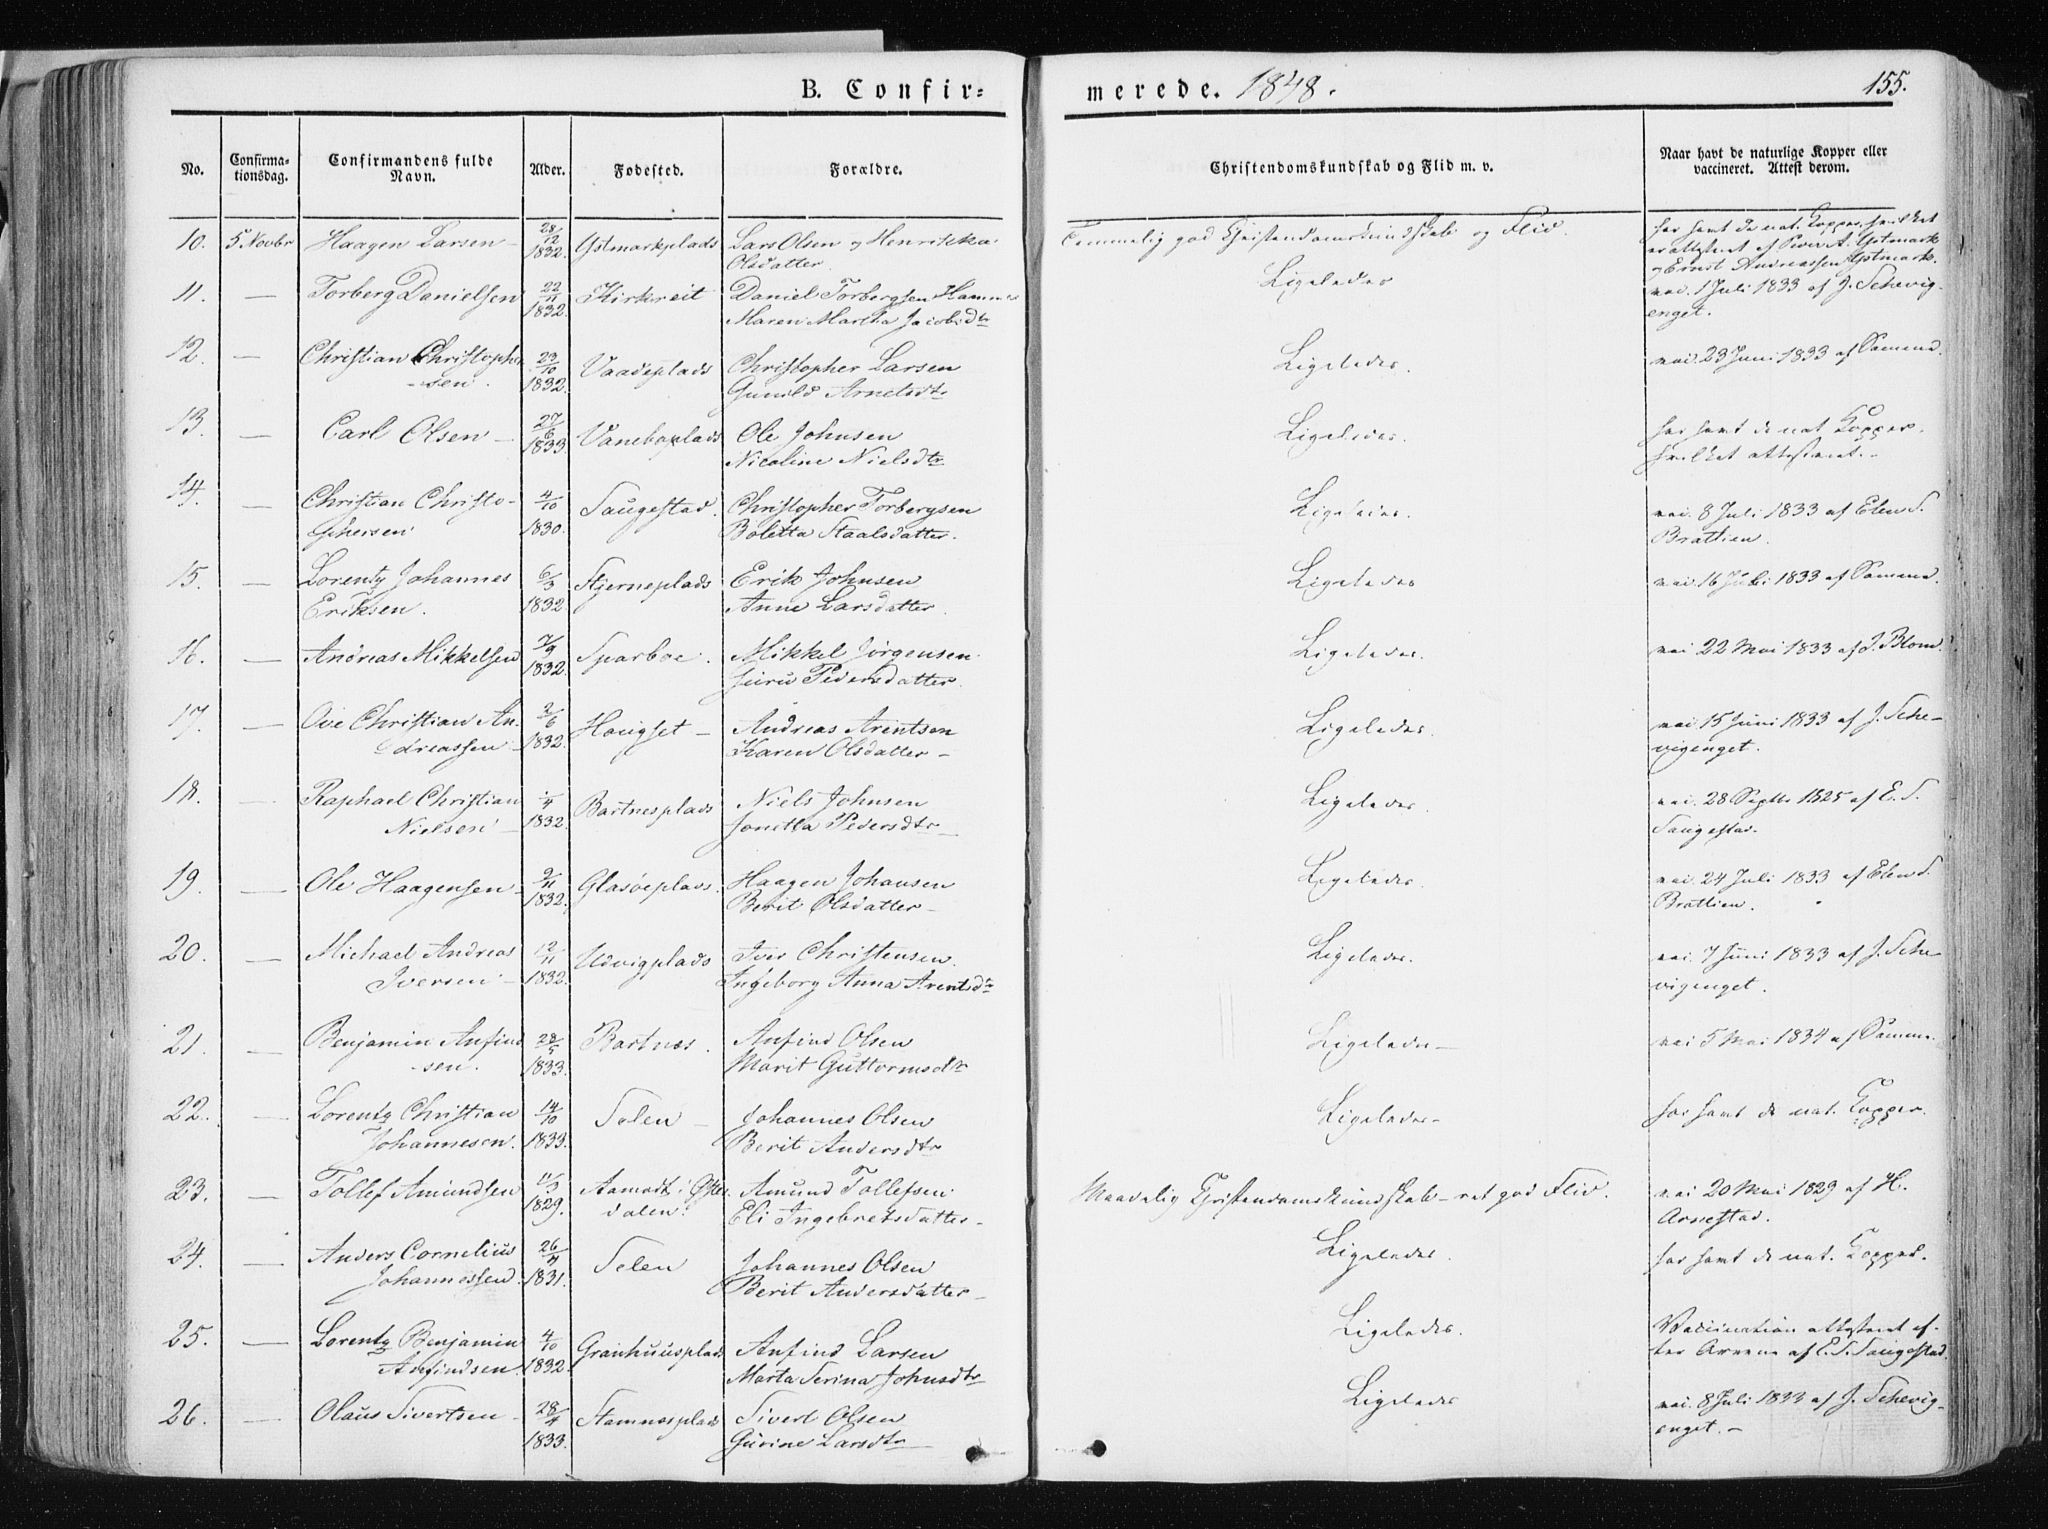 B. Confir=
merede. 1848.
155.
No.
Confirma-
tionsdag.
Confirmandens fulde
Navn.
Alder.
Fødested.
Forældre.
Christendomskundskab og Flid m. v.
Naar havt de naturlige Kopper eller
vaccineret. Attest derom.
10. 5. Novbr Haagen Larsen 28/12 1832. Ystmarkplads Lars Olsen og Henrikka
Olsdatter.
Temmelig god Christendomskundskab og Flid.
har havt de nat. Kopper, hvilket
er attesteret af Peder A. Ystmark
og Ernst Andreassen Ystmark.
11. — Torberg Danielsen 22/11 1832. Kirkreit Daniel Torbergsen Hammer
Maren Martha Jacobsdtr
Ligeledes
vac. 1 Juli 1833 af J. Schevig-
enget.
12. — Christian Christopher
-sen. 23/10 1832. Vaadeplads Christopher Larsen
Gunild Arnetsdtr
Ligeledes.
vac. 23 Juni 1833 af Samme.
13. — Carl Olsen 27/6 1833. Vaneboplads Ole Johnsen
Nicoline Nielsdtr
Ligeledes.
har havt de nat Kopper,
hvilket attesteret.
14. — Christian Christo-
phersen 4/10 1830. Saugestad. Christopher Torbergsen
Boletta Staalsdatter.
Ligeledes.
vac. 8 Juli 1833 af Elen S.
Brattien.
15. — Lorentz Johannes
Eriksen. 6/3 1832 Stjerneplads Erik Johnsen
Anne Larsdatter.
Ligeledes
vac. 16 Juli 1833 af Samme.
16. — Andreas Mikkelsen 7/9 1832. Sparboe. Mikkel Jørgensen
Guru Pedersdatter.
Ligeledes.
vac 22 Mai 1833 af J. Blom.
17. — Ove Christian An-
dreassen 2/6 1832. Hougset — Andreas Arentsen
Karen Olsdatter —
Ligeledes.
vac 15 Juni 1833 af J. Sche-
vigenget.
18. — Raphael Christian
Nielsen 1832. Bartnesplads Niels Johnsen
Jonetta Pedersdtr
Ligeledes.
vac. 28 Septbr 1825 af E. S.
Saugestad.
19. — Ole Haagensen 9/11 1832. Glasøeplads. Haagen Johansen
Berit Olsdatter —
Ligeledes.
vac. 24 Juli 1833 af Elen S.
Brattien.
20. — Michael Andreas
Iversen 12/11 1832. Udvigplads Iver Christensen.
Ingeborg Anna Arentsdtr
Ligeledes.
vac. 7 Juni 1833 af J. Sche-
vigenget.
21. — Benjamin Anfind
-sen. 28/5 1833. Bartnæs. Anfind Olsen
Marit Guttormsdtr
Ligeledes —
vac 5 Mai 1834 af Samme.
22. — Lorentz Christian
Johannesen. 14/10 1833. Selen — Johannes Olsen
Berit Andersdtr
Ligeledes —
har havt de nat. Kopper.
23. — Tollef Amundsen 1829. Aamodt i Øster
dalen. Amund Tollefsen
Eli Ingebretsdatter —
Maadelig Christendomskundskab — ret god Flid.
vac 20 Mai 1829 af H.
Arnestad.
24. — Anders Cornelius
Johannessen. 26/4 1831. Selen Johannes Olsen
Berit Andersdatter —
Ligeledes.
har havt de nat. Kopper.
25. — Lorentz Benjamin
Anfindsen. 4/10 1832. Granhuusplads Anfind Larsen
Marta Serina Johnsdtr
Ligeledes.
Vaccination attesteret ef-
ter Arrene af E. S. Saugestad.
26. — Olaus Sivertsen 28/4 1833. Stamnesplads Sivert Olsen
Gurine Larsdtr —
Ligeledes
vac. 8 Juli 1833 af J. Schevig-
enget. —